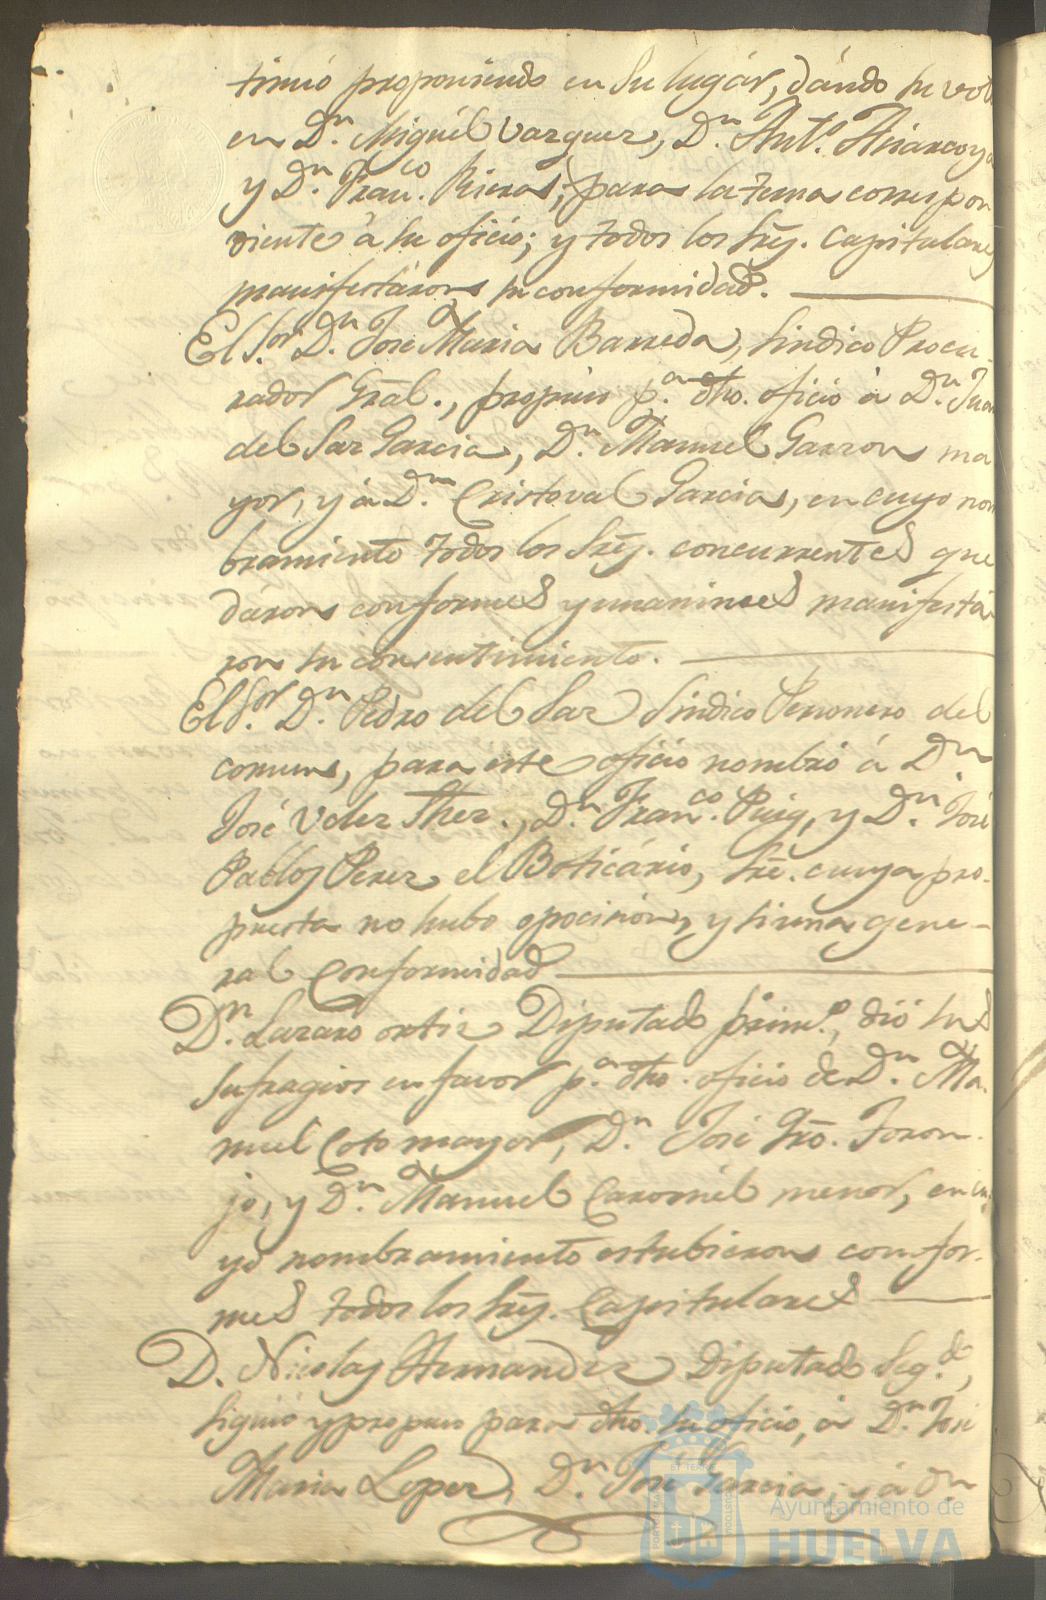 tinuó proponiendo en su lugár, dándo su voto
en Dn. Miguél Vazquez, Dn. Antº.
y Dn. Franco. Rieras, para la terna correspon
diente á su oficio; y todos los Srēs. Capitulares
manifestáron su conformidad.
El Sor. Dn. José Maria Barreda, Sindico Procu-
rador Grāl., propuso pa. dho. oficio á Dn. Juan
del Saz Garcia, Dn. Manuel Garzon ma
yor, y á Dn. Cristoval Garcia, en cuyo nom
bramiento todos los Srēs. concurrentes que
dáron conformes y unanimes manifestá
ron su consentimiento.
El Sor. Dn. Pedro del Saz Sindico Personero del
comun, para este oficio nombró á Dn.
José Velez, Dn. Franco. Puig, y Dn. José
Pablos Perez el Boticário, sre. cuya pro-
puesta no hubo opocision, y si una gene-
ral Conformidad
Dn. Lazaro ortiz Diputado primº., dió sus
sufragios en favor pa. dho. oficio de Dn. Ma-
nuel Coto mayor, Dn. José Toron-
jo, y Dn. Manuel Caromél menor, en cu-
yo nombramiento estubieron confor-
mes todos los Srēs. Capitulares
D. Nicolas Hernandez Diputado Segdo.,
siguió y propuso para dho. su oficio, á Dn. José
Maria Lopez, Dn. José Garcia, y á Dn
Ayuntamiento de
HUELVA